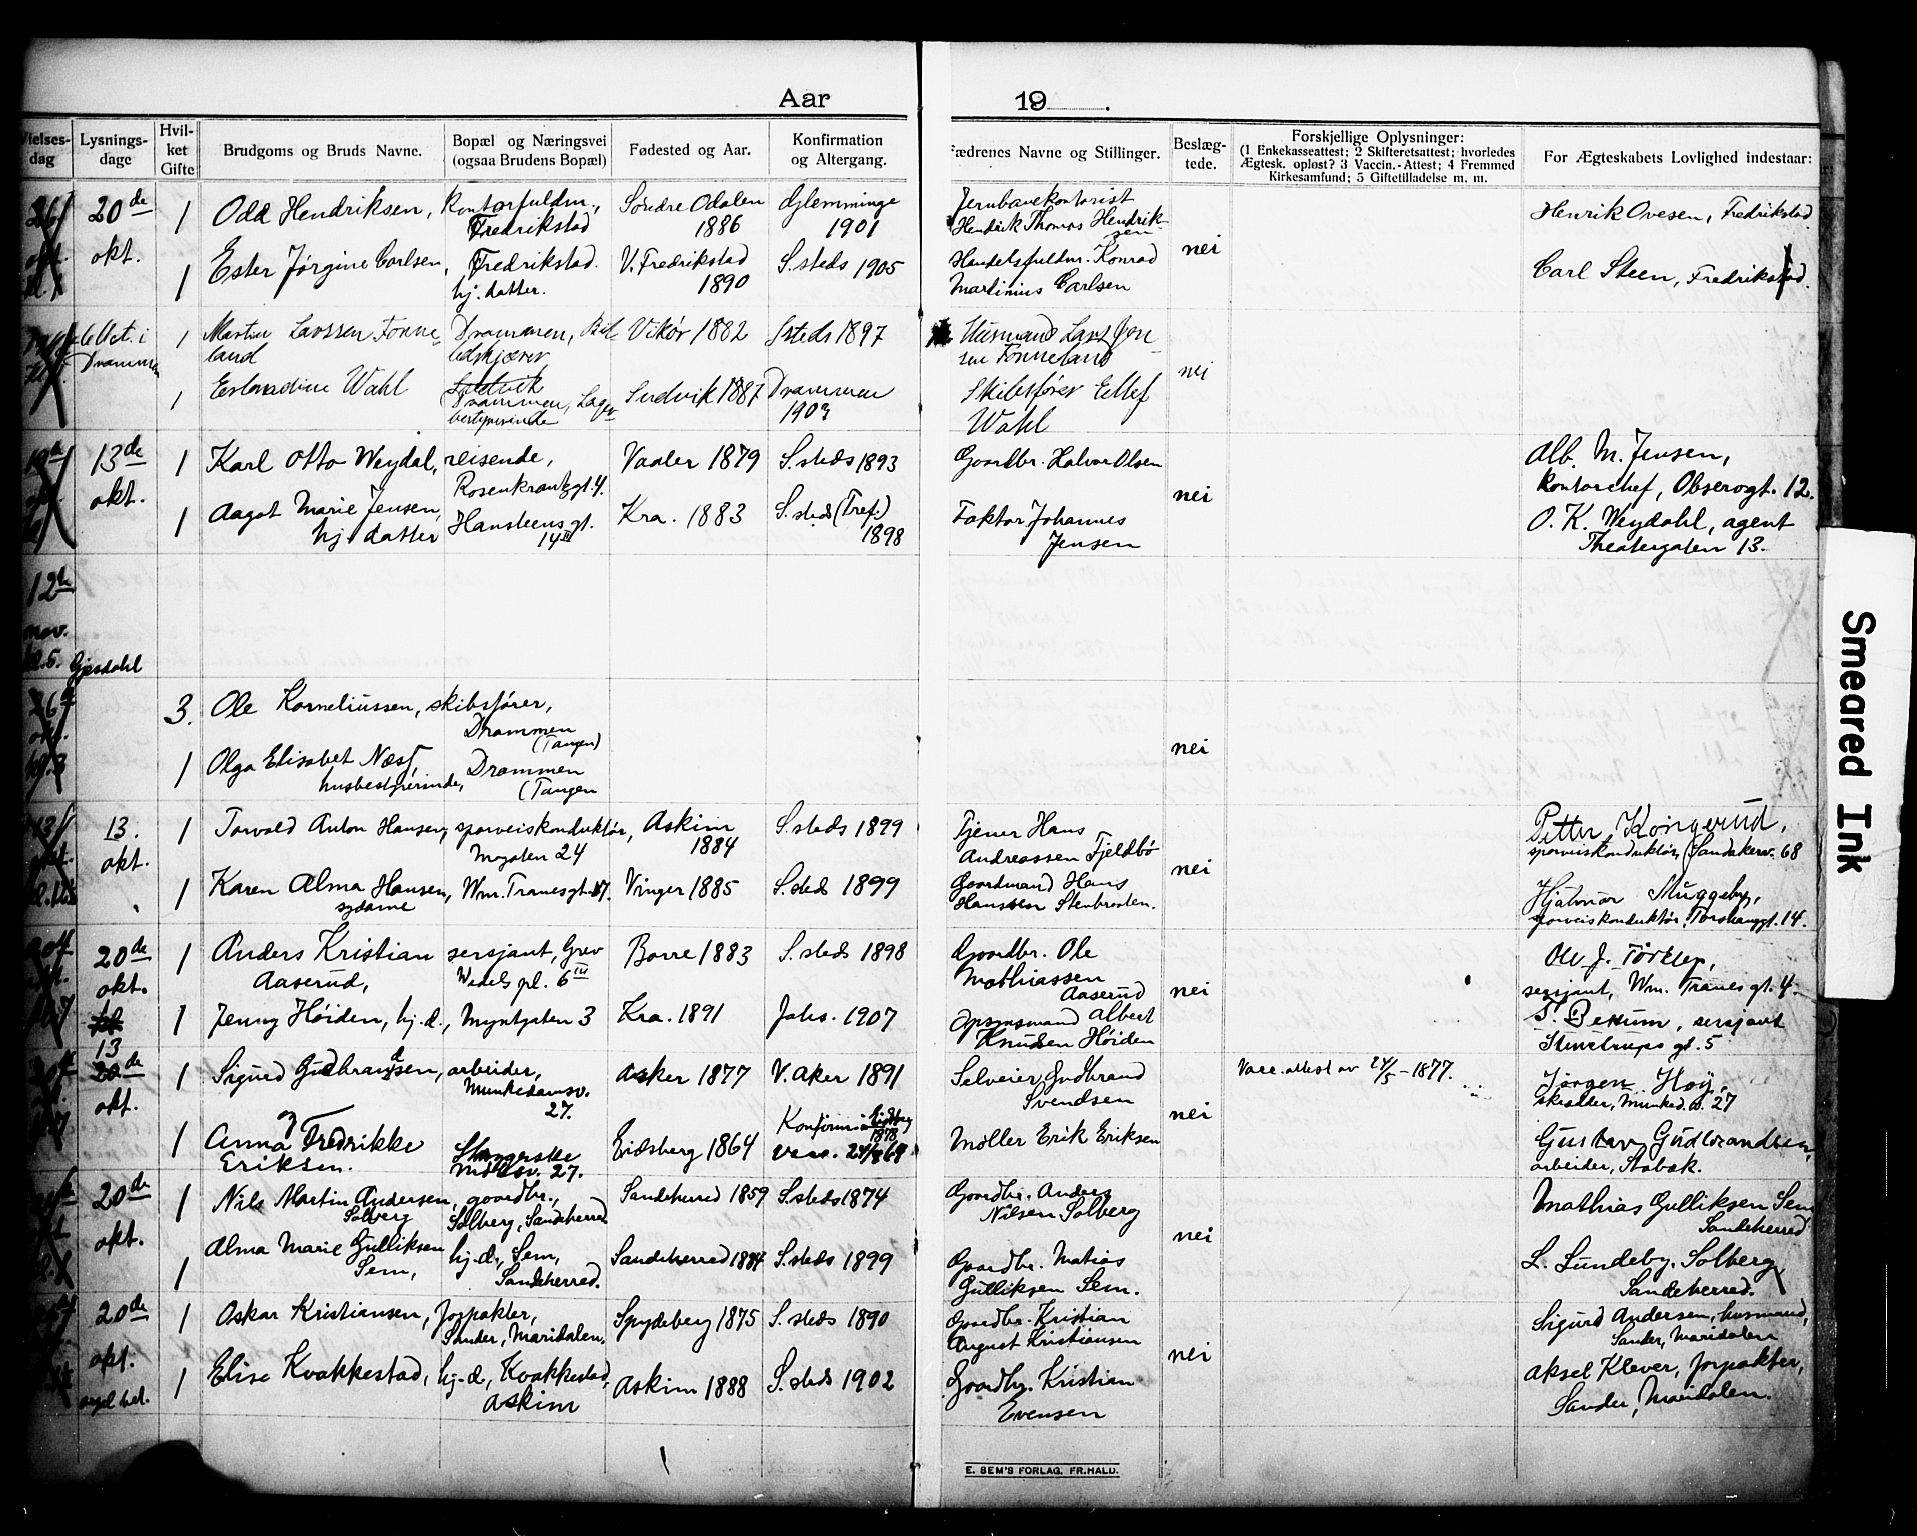 Aar
19 .
Vielses-
dag
Lysnings-
dage
Hvil-
ket
Gifte
Brudgoms og Bruds Navne.
Bopæl og Næringsvei
(ogsaa Brudens Bopæl)
Fødested og Aar.
Konfirmation
og Altergang.
Fædrenes Navne og Stillinger.
Beslæg-
tede.
Forskjellige Oplysninger:
(1 Enkekasseattest; 2 Skifteretsattest; hvorledes
Ægtesk. opløst? 3 Vaccin.-Attest; 4 Fremmed
Kirkesamfund; 5 Giftetilladelse m. m.
For Ægteskabets Lovlighed indestaar:
20de
okt.
1 Odd Hendriksen, kontorfuldm.,
Fredrikstad
Søndre Odalen
1886
Glemminge
1901
Jernbanekontorist
Hendrik Thomas Hendrik-
sen
nei
Henrik Ovesen, Fredrikstad
1 Ester Jørgine Carlsen, Fredrikstad.
hj. datter.
V. Fredrikstad
1890
S. steds 1905
Handelsfuldm. Konrad
Martinius Carlsen
Carl Steen, Fredrikstad.
Drammen
1 Martin Larssen Tonne-
land
Drammen,
Vikør 1882
S steds 1897
Husmand Lars
Tonneland
nei
1 Wahl
Drammen, Lager-
bestyrerinde
Sandvik 1887
Drammen
1903
Skibsfører Ellef
Wahl
13de
okt.
1 Karl Otto Weydal, reisende,
Rosenkrantzgt. 4.
Vaaler 1879
S. steds 1893
Gaardbr. Halvor Olsen
nei
Alb. M. Jensen,
kontorchef, Observgt. 12.
1 Aagot Marie Jensen,
hj. datter
Hansteensgt.
14 III
Kra. 1883
S. steds (Tref.)
1898
Faktor Johannes
Jensen
O. K. Weydahl, agent
Theatergaten 13.
12te
nov.
kl. 5.
Gjesdahl
3. Ole Korneliussen, skibsfører,
Drammen
(Tangen)
1 Olga Elisabet Næss,
husbestyrerinde,
Drammen
(Tangen
nei
13.
okt.
1 Torvald Anton Hansen, sporveiskonduktør,
Mogaten 24
Askim
1884
S. steds 1899
Tjener Hans
Andreassen Fjeldbø
nei
Petter Kongerud,
sporveiskonduktør, Sandakerv. 68
1 Karen Alma Hansen,
sydame
Wm. Tranesgt. 47.
Vinger 1885
S. steds 1899
Gaardmand Hans
Hanssen Stenbraaten.
Hjalmar Muggeby,
sporveiskonduktør, Torshauggt. 14.
20de
okt.
1 Anders Kristian
Aaserud,
sersjant, Grev
Wedels pl. 6 III
Borre 1883
S. steds 1898
Gaardbr. Ole
Mathiassen
Aaserud
nei
sersjant, Wm. Tranes gt. 4.
1 Jenny Høiden, hj. d., Myntgaten 3
Kra. 1891
Johs. 1907
Opsynsmand Albert
Knudsen Høiden
sersjant
Stenstrups gt. 5
13
20de
okt.
1 Sigurd Gudbrandsen, arbeider,
Munkedamsv.
27.
Asker 1877
V. Aker 1891
Selveier Gudbrand
Svendsen
nei
Vacc. attest av 24/5 - 1877.
Jørgen Hoy,
Munked. v. 27
1 Anna Fredrikke
Eriksen.
27.
Eidsberg 1864
1878
Møller Erik Eriksen
Gustav Gudbrandsen,
arbeider, Stabæk.
20de
okt.
1 Nils Martin Andersen, gaardbr.,
Solberg
Solberg, Sandeherred
Sandeherred 1859
S. steds 1874
Gaardbr. Anders
Nilsen Solberg
nei
Mathias Gulliksen Sem
Sandeherred
1 Alma Marie Gulliksen
Sem,
hj. d., Sem,
Sandeherred.
Sandeherred 1884
S. steds 1899
Gaardbr. Matias
Gulliksen Sem.
L. Lundeby. Solberg
Sandeherred.
20de
okt.
1 Oskar Kristiansen, forpakter,
Sander, Maridalen.
Spydeberg 1875
S. steds 1890
Gaardbr. Kristian
August Kristiansen
nei
Sigurd Andersen, husmand,
Sander, Maridalen
1 Elise Kvakkestad, hj. d., Kvakkestad,
Askim
Askim 1888
S. steds 1902
Gaardbr. Kristian
Evensen
Aksel Klever, forpakter,
Sander, Maridalen.
E. SEM'S FORLAG, FR.HALD.
Smeared Ink